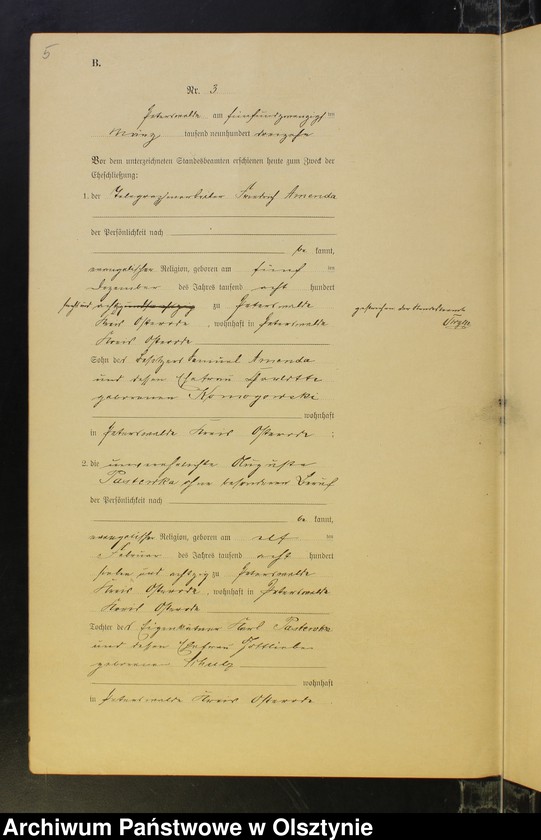 5
B.
Nr. 3
Peterswalde am fünfundzwanzigsten
März tausend neunhundert dreizehn
Vor dem unterzeichneten Standesbeamten erschienen heute zum Zweck der
Eheschließung:
1. der Telegraphenarbeiter Friedrich Amenda
der Persönlichkeit nach
be kannt,
evangelischer Religion, geboren am fünf ten
Dezember des Jahres tausend acht hundert
achtzig zu Peterswalde
Kreis Osterode, wohnhaft in Peterswalde
Kreis Osterode
gestrichen der Standesbeamte
Sohn des Besitzers Samuel Amenda
und dessen Ehefrau Charlotte
geborenen Komogowski
wohnhaft
in Peterswalde Kreis Osterode :
2. die unverehelichte Auguste
Pasterska ohne besonderen Beruf
der Persönlichkeit nach
be kannt,
evangelischer Religion, geboren am elf ten
Februar des Jahres tausend acht hundert
sieben und achtzig zu Peterswalde
Kreis Osterode, wohnhaft in Peterswalde
Kreis Osterode
Tochter des Eigenkätner Karl
und dessen Ehefrau Gottliebe
geborenen Schulz
wohnhaft
in Peterswalde Kreis Osterode
Archiwum Państwowe w Olsztynie